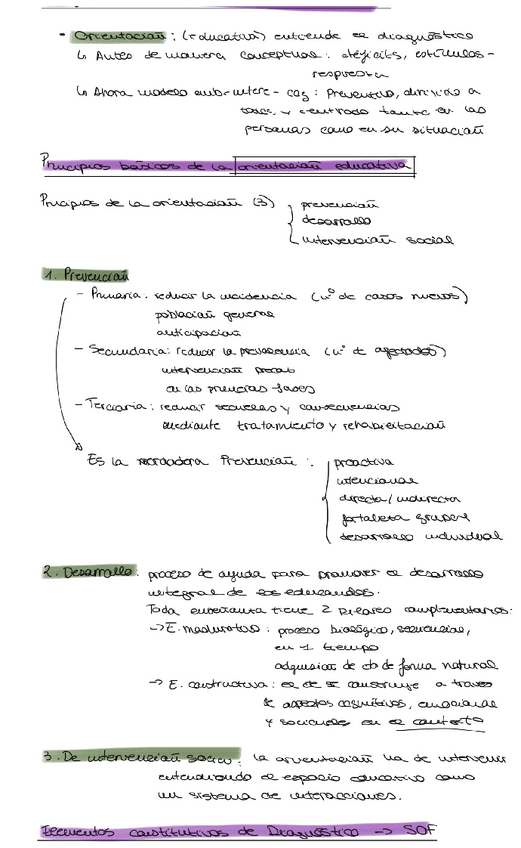 • Orientación: (educativa) entiende el diagnóstico
↳ Antes de manera conceptual: déficits, estímulos-
respuesta
↳ Ahora modelo amb-intere-cog: Preventivo, dirigido a
todos, y centrado tanto en las
personas como en su situación
Principios básicos de la orientación educativa
Principios de la orientación (3)
prevención
desarrollo
intervención social
1. Prevención
- Primaria: reducir la incidencia (nº de casos nuevos)
población general
anticipación
- Secundaria: reducir la prevalencia (nº de afectados)
intervención precoz
en las primeras fases
- Terciaria: reducir secuelas y consecuencias
mediante tratamiento y rehabilitación
Es la verdadera Prevención:
proactiva
intencional
directa/indirecta
fortaleza grupal
desarrollo individual
2. Desarrollo: proceso de ayuda para promover el desarrollo
integral de los educandos.
Toda enseñanza tiene 2 pilares complementarios:
→ E. madurativo: proceso biológico, secuencial,
en 1 tiempo
adquisición de cto de forma natural
→ E. constructiva: el cto se construye a través
de aspectos cognitivos, emocional
y sociales en el contexto
3. De intervención social: la orientación ha de intervenir
entendiendo el espacio educativo como
un sistema de interacciones.
Elementos constitutivos de Diagnóstico → SOF